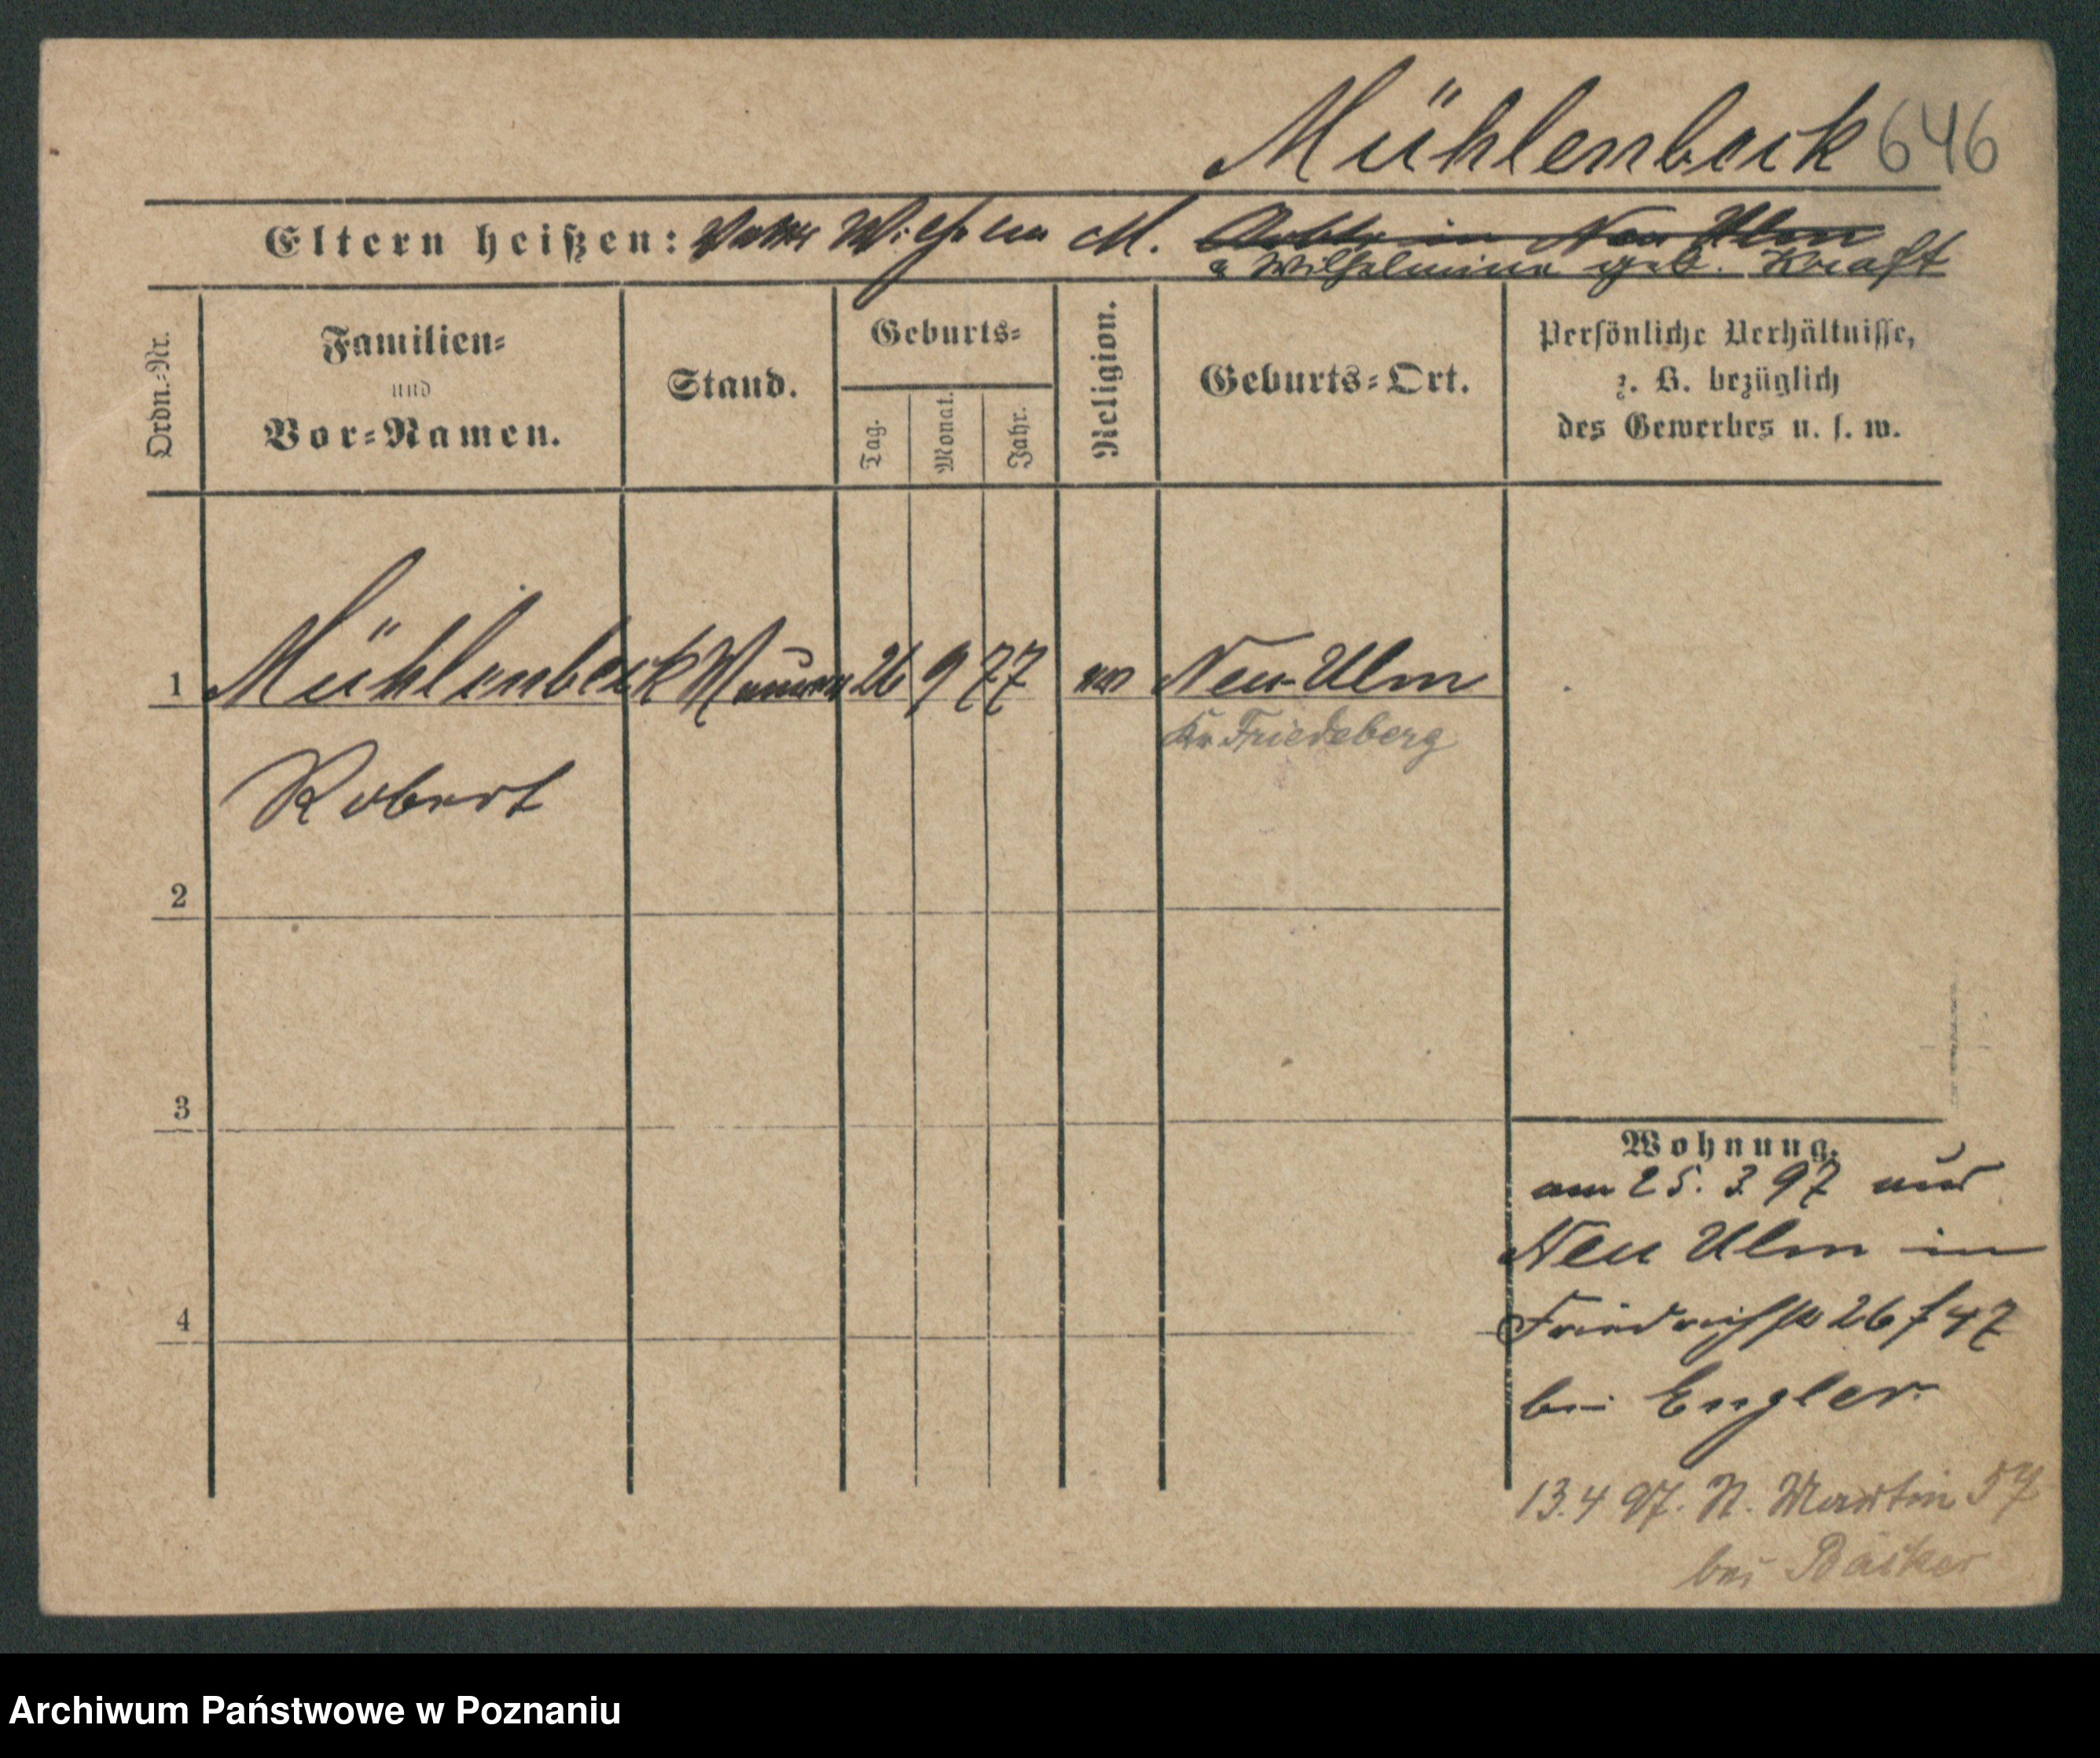 Mühlenbeck 646
Eltern heißen: Vater Wilhelm M. Arbtr in Neu Ulm
u Wilhelmine geb. Kraft
Ordn.=Nr.
Familien=
und
Vor=Namen.
Stand.
Geburts=
Tag.
Monat.
Jahr.
Religion.
Geburts=Ort.
Persönliche Verhältnisse,
z. B. bezüglich
des Gewerbes u. s. w.
1 Mühlenbeck Maurer 26 9 77 ev Neu-Ulm
Kr. Friedeberg
Robert
2
3
4
Wohnung.
am 25. 3 97 aus
Neu Ulm in
Friedrichstr 26 f 47
bei Engler
13.4 97. N. Martin 57
bei Bäcker
Archiwum Państwowe w Poznaniu